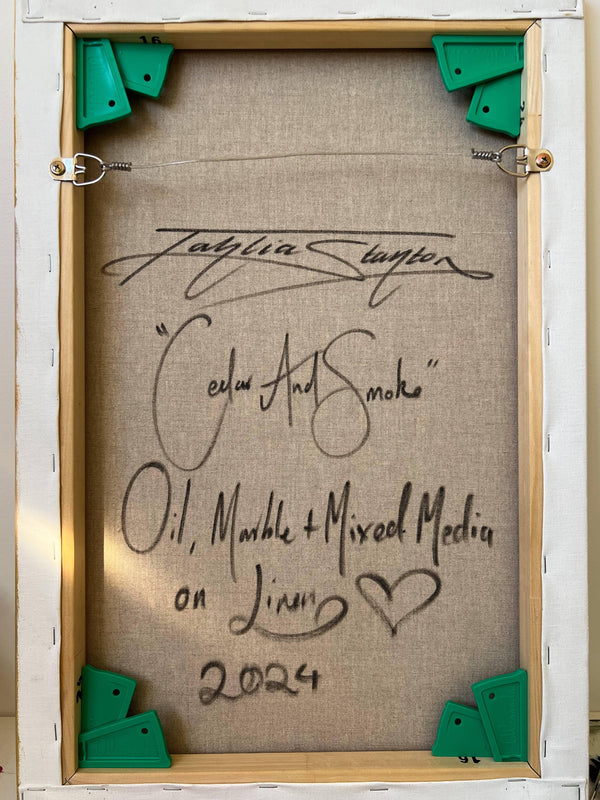 16
Tahlia Stanton
"Cedar And Smoke"
Oil, Marble + Mixed Media
on Linen
2024
16